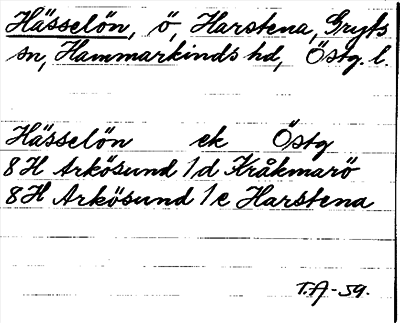 Hässelön, ö, Harstena, Gryts
sn, Hammarkinds hd, Östg. l.
Hässelön ek Östg
8H Arkösund 1d Kråkmarö
8H Arkösund 1e Harstena
T.A-59.